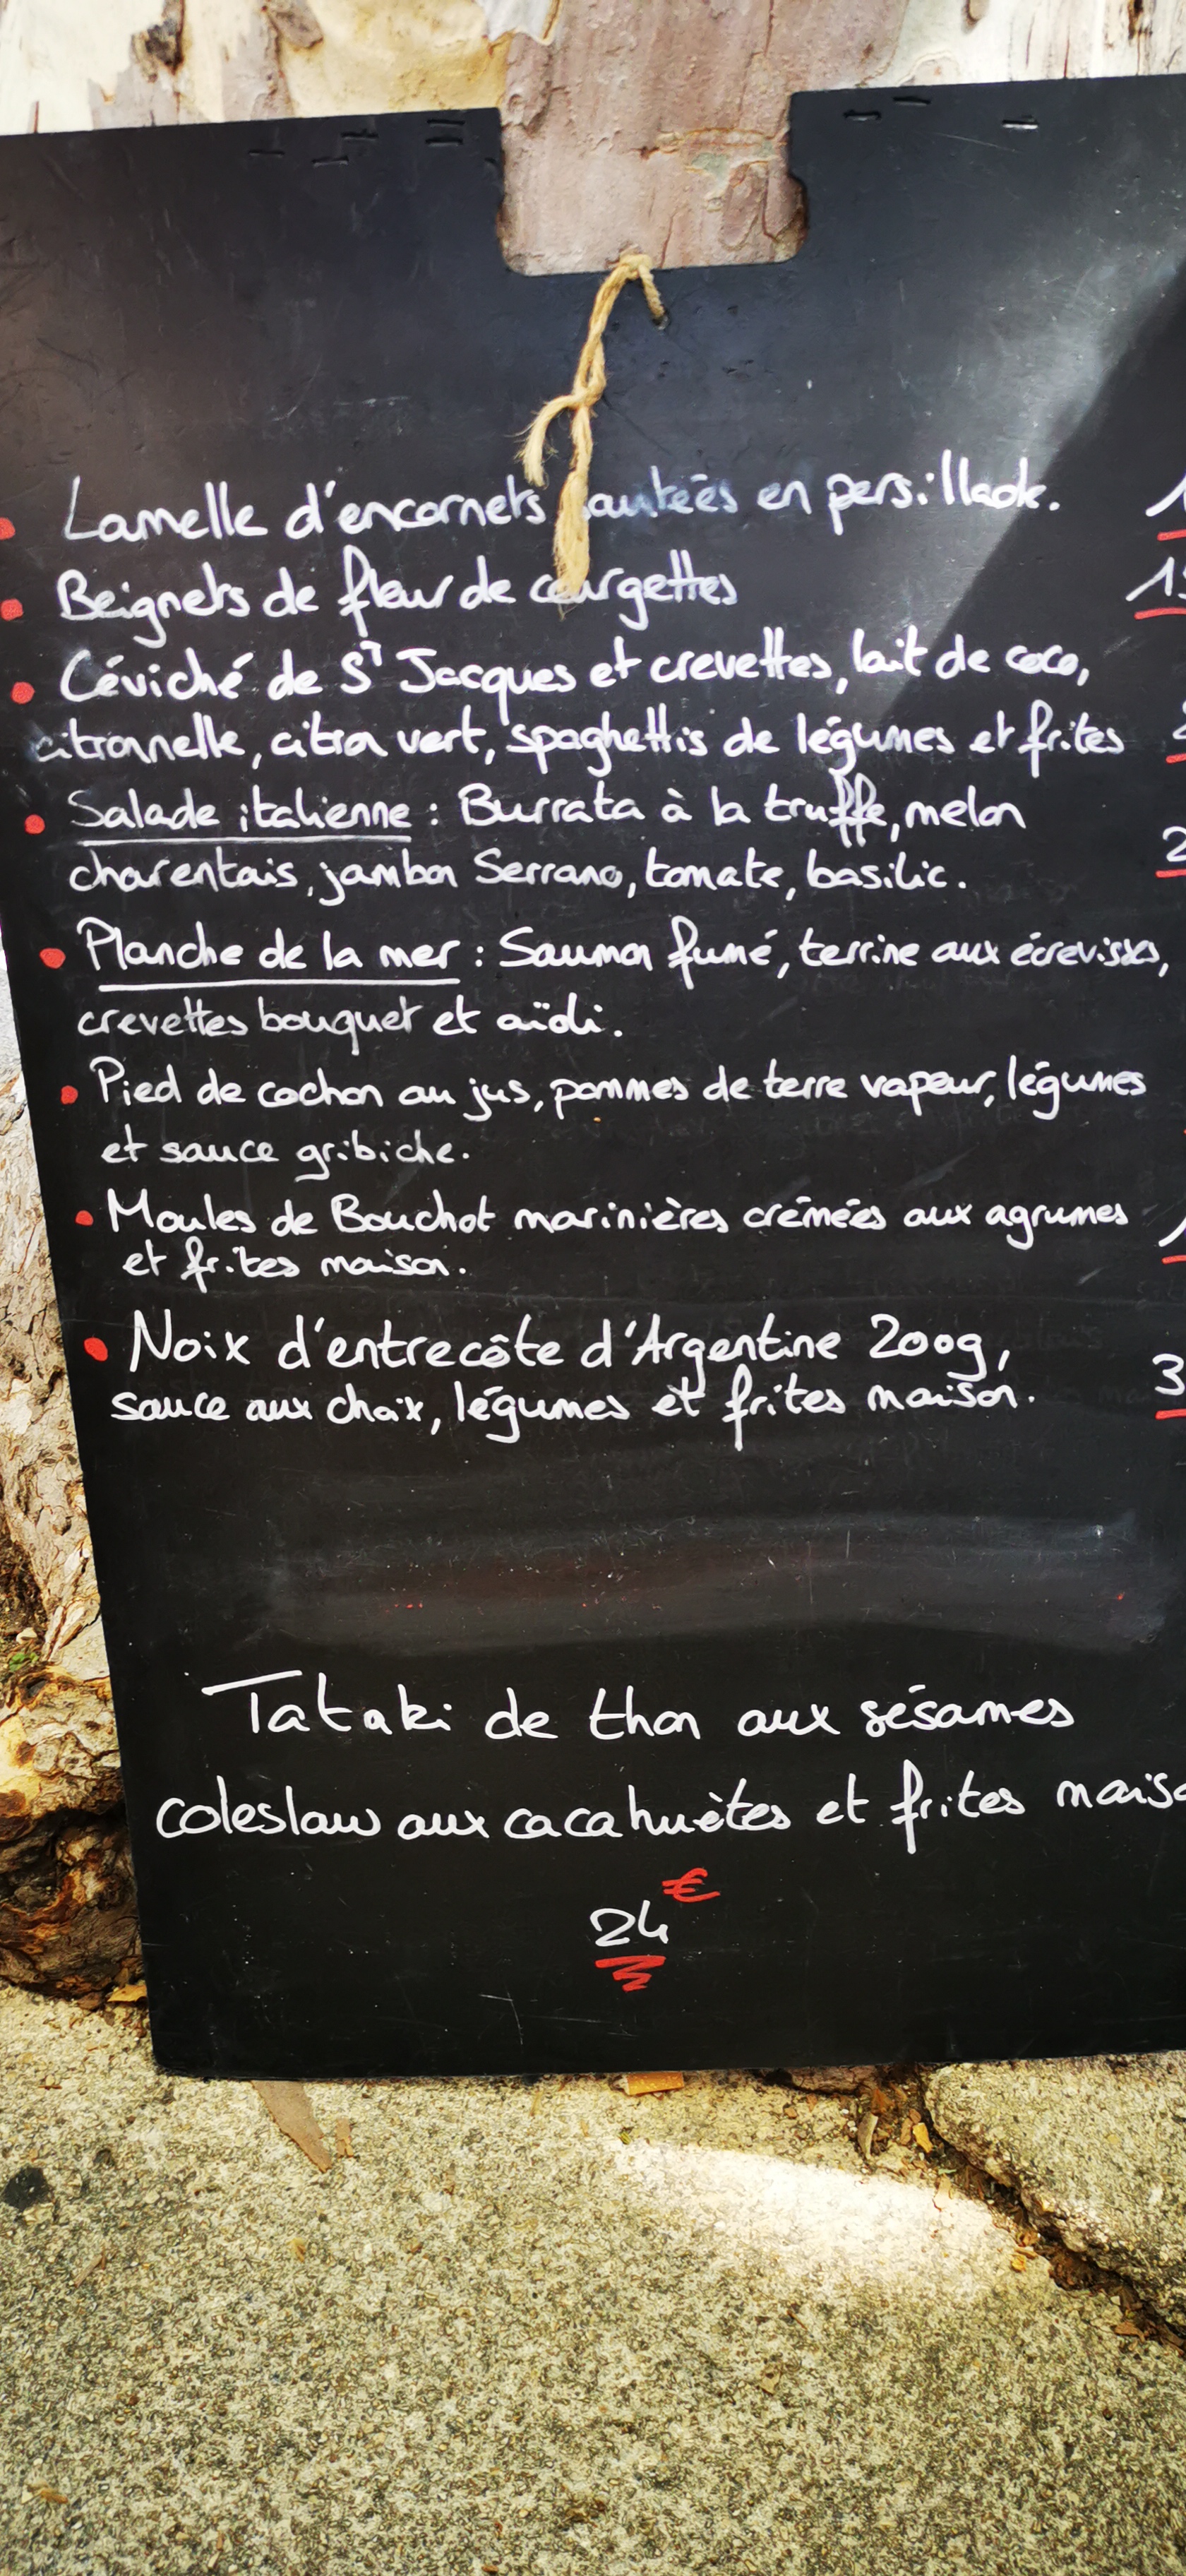 Lamelle d'encornets sautées en persillade.
Beignets de fleur de courgettes
Céviché de St Jacques et crevettes, lait de coco,
citronnelle, citron vert, spaghettis de légumes et frites
Salade italienne : Burrata à la truffe, melon
charentais, jambon Serrano, tomate, basilic.
Planche de la mer : Saumon fumé, terrine aux écrevisses,
crevettes bouquet et aïoli.
Pied de cochon au jus, pommes de terre vapeur, légumes
et sauce gribiche.
Moules de Bouchot marinières crémées aux agrumes
et frites maison.
Noix d'entrecôte d'Argentine 200g,
sauce aux choix, légumes et frites maison.
Tataki de thon aux sésames
coleslaw aux cacahuètes et frites
24 €